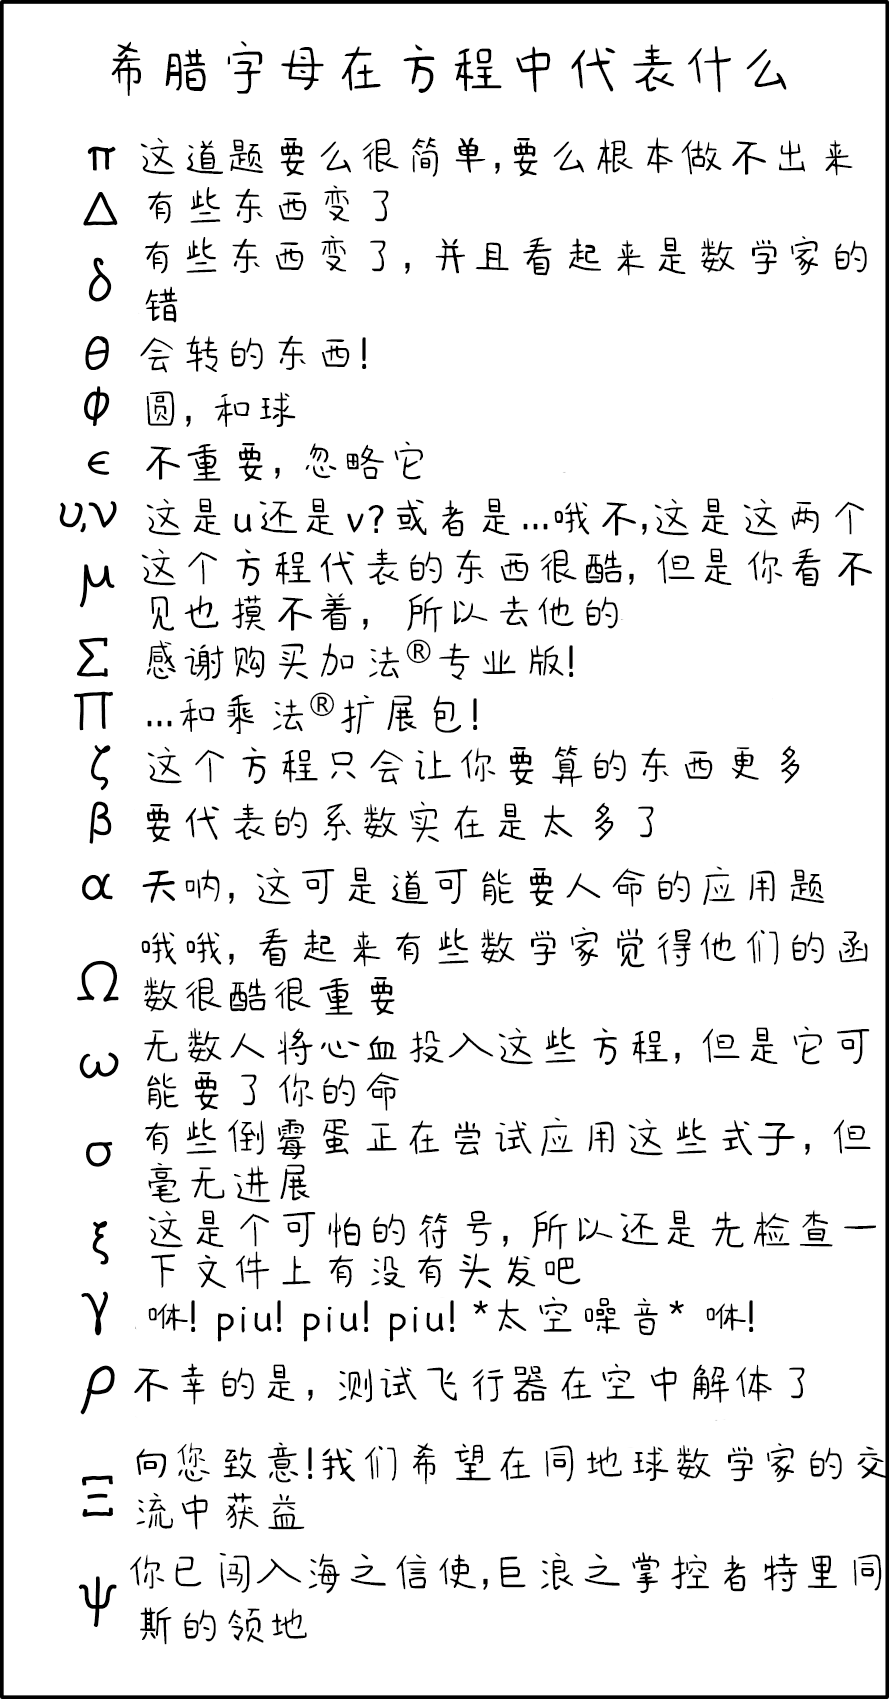 希腊字母在方程中代表什么
π 这道题要么很简单,要么根本做不出来
Δ 有些东西变了
δ 有些东西变了,并且看起来是数学家的
错
θ 会转的东西!
ϕ 圆,和球
ϵ 不重要,忽略它
υ,ν 这是u还是v?或者是...哦不,这是这两个
μ 这个方程代表的东西很酷,但是你看不
见也摸不着,所以去他的
Σ 感谢购买加法®专业版!
Π ...和乘法®扩展包!
ζ 这个方程只会让你要算的东西更多
β 要代表的系数实在是太多了
α 天呐,这可是道可能要人命的应用题
Ω 哦哦,看起来有些数学家觉得他们的函
数很酷很重要
ω 无数人将心血投入这些方程,但是它可
能要了你的命
σ 有些倒霉蛋正在尝试应用这些式子,但
毫无进展
ξ 这是个可怕的符号,所以还是先检查一
下文件上有没有头发吧
γ 咻! piu! piu! piu! *太空噪音* 咻!
ρ 不幸的是,测试飞行器在空中解体了
Ξ 向您致意!我们希望在同地球数学家的交
流中获益
ψ 你已闯入海之信使,巨浪之掌控者特里同
斯的领地